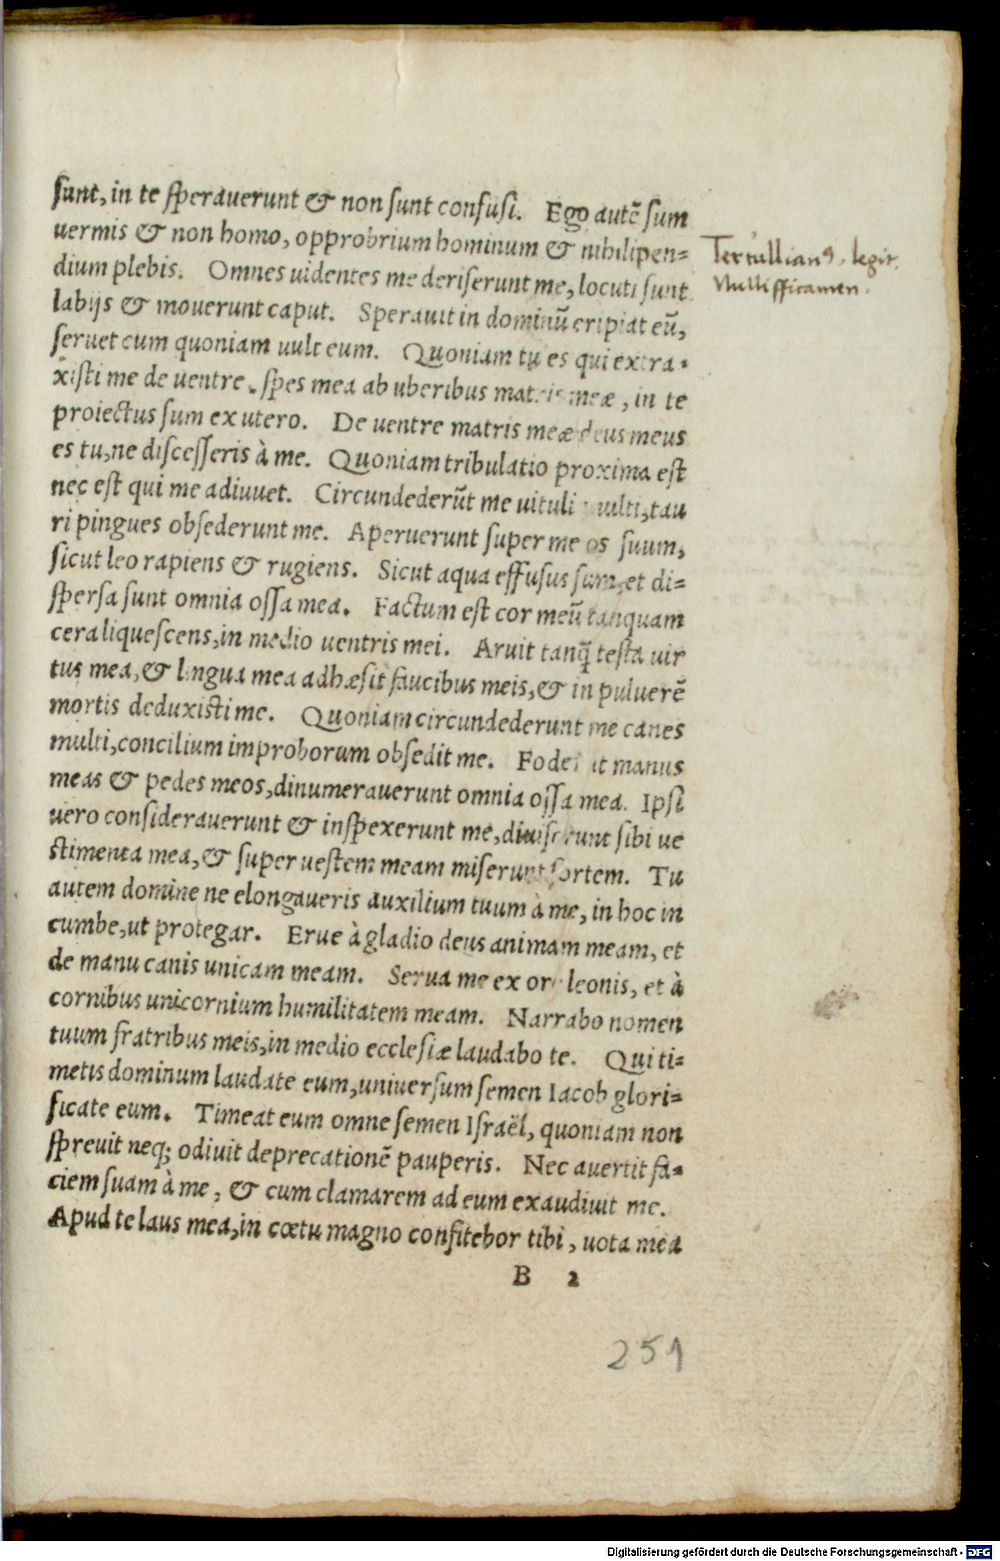 sunt, in te sperauerunt & non sunt confusi. Ego autē sum
uermis & non homo, opprobrium hominum & nihilipen=
dium plebis. Omnes uidentes me deriserunt me, locuti sunt
labijs & mouerunt caput. Sperauit in dominū eripiat eū,
seruet eum quoniam uult eum. Quoniam tu es qui extra-
xisti me de uentre. spes mea ab uberibus matris meæ, in te
proiectus sum ex utero. De uentre matris meæ deus meus
es tu, ne discesseris à me. Quoniam tribulatio proxima est
nec est qui me adiuuet. Circundederūt me uituli multi, tau
ri pingues obsederunt me. Aperuerunt super me os suum,
sicut leo rapiens & rugiens. Sicut aqua effusus sum, et di=
spersa sunt omnia ossa mea. Factum est cor meū tanquam
cera liquescens, in medio uentris mei. Aruit tanq̃ testa uir
tus mea, & lingua mea adhæsit faucibus meis, & in puluerē
mortis deduxisti me. Quoniam circundederunt me canes
multi, concilium improborum obsedit me. Foderūt manus
meas & pedes meos, dinumerauerunt omnia ossa mea. Ipsi
uero considerauerunt & inspexerunt me, diuiserunt sibi ue
stimenta mea, & super uestem meam miserunt sortem. Tu
autem domine ne elongaueris auxilium tuum à me, in hoc in
cumbe, ut protegar. Erue à gladio deus animam meam, et
de manu canis unicam meam. Serua me ex ore leonis, et à
cornibus unicornium humilitatem meam. Narrabo nomen
tuum fratribus meis, in medio ecclesiæ laudabo te. Qui ti=
metis dominum laudate eum, uniuersum semen Iacob glori=
ficate eum. Timeat eum omne semen Israël, quoniam non
spreuit neq; odiuit deprecationē pauperis. Nec auertit fa-
ciem suam à me, & cum clamarem ad eum exaudiuit me.
Apud te laus mea, in cœtu magno confitebor tibi, uota mea
B 2
Tertullianꝰ. legit.
Nullifficamen.
251
Digitalisierung gefördert durch die Deutsche Forschungsgemeinschaft - DFG